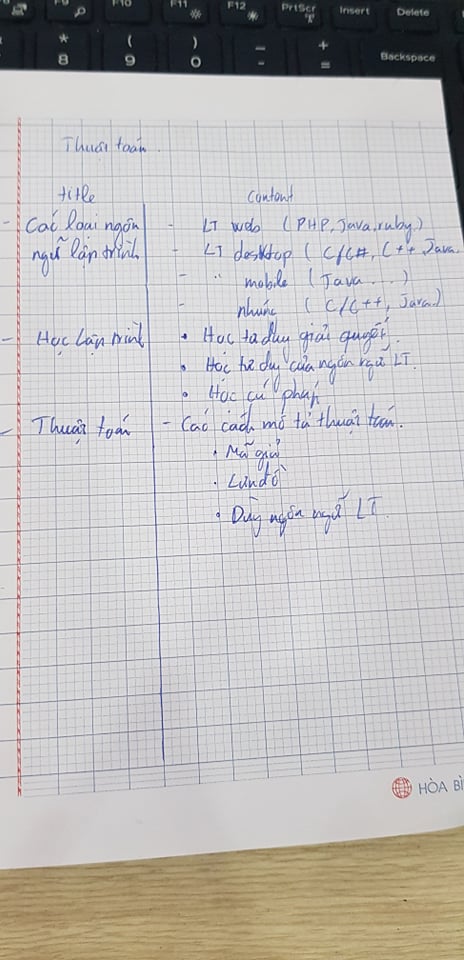 F9 F10 F11 F12 PrtScr Insert Delete
* ( ) _ +
8 9 0 - = Backspace
Thuật toán
title content
- Các loại ngôn - LT web (PHP, Java, ruby)
ngữ lập trình - LT desktop ( C/C#, C++ Java.
- " mobile ( Java ...)
- nhúng ( C/C++, Java.)
- Học Lập trình • Học tư duy giải quyết.
• Học tư duy của ngôn ngữ LT.
• Học cú pháp
- Thuật toán - Các cách mô tả thuật toán.
• Mã giả
• Lưu đồ
• Dùng ngôn ngữ LT.
HÒA BÌ